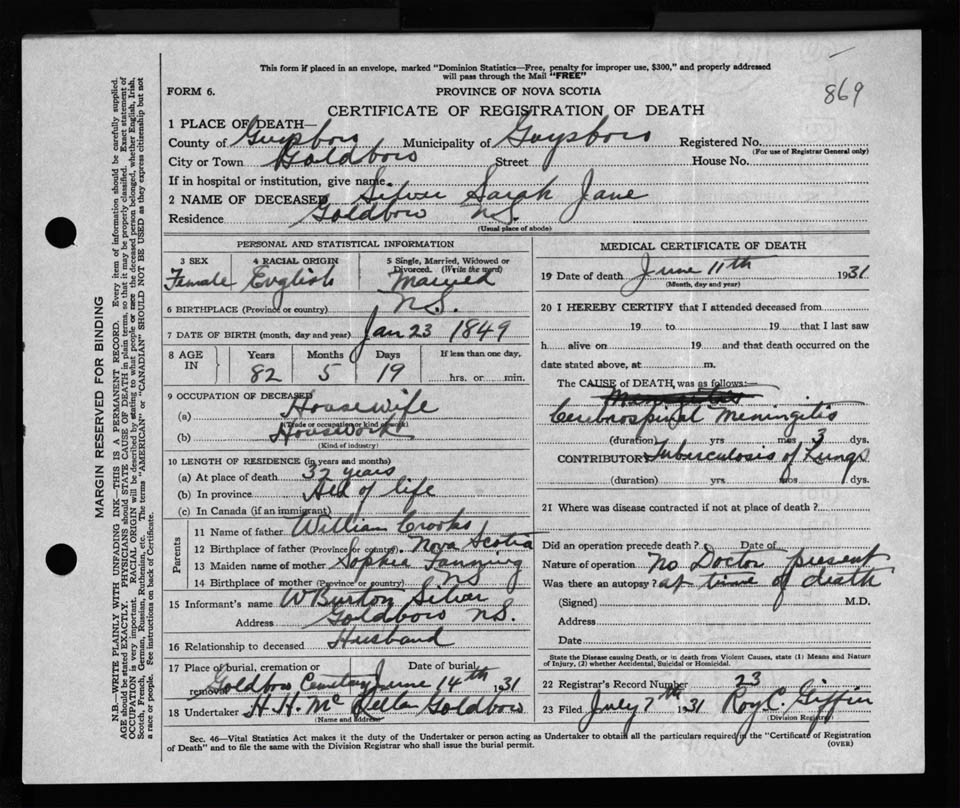 This form if placed in an envelope, marked "Dominion Statistics—Free, penalty for improper use, $300," and properly addressed
will pass through the Mail "FREE"
869
FORM 6. PROVINCE OF NOVA SCOTIA
CERTIFICATE OF REGISTRATION OF DEATH
1 PLACE OF DEATH—
County of Guysboro Municipality of Guysboro Registered No.
(For use of Registrar General only)
City or Town Goldboro Street House No.
If in hospital or institution, give name
2 NAME OF DECEASED Silver Sarah Jane
Residence Goldboro N.S.
(Usual place of abode)
PERSONAL AND STATISTICAL INFORMATION
3 SEX 4 RACIAL ORIGIN 5 Single, Married, Widowed or
Divorced. (Write the word)
Female English Married
6 BIRTHPLACE (Province or country) N.S.
7 DATE OF BIRTH (month, day and year) Jan 23 1849
8 AGE IN Years Months Days If less than one day,
82 5 19 hrs. or min.
9 OCCUPATION OF DECEASED
(a) Housewife
(Trade or occupation or kind of work)
(b) Housework
(Kind of industry)
10 LENGTH OF RESIDENCE (in years and months)
(a) At place of death 32 years
(b) In province All of life
(c) In Canada (if an immigrant)
Parents
11 Name of father William Crooks
12 Birthplace of father (Province or country) Nova Scotia
13 Maiden name of mother Sophia Fanning
14 Birthplace of mother (Province or country) NS
15 Informant's name W Burton Silver
Address Goldboro N.S.
16 Relationship to deceased Husband
17 Place of burial, cremation or Date of burial
removal Goldboro Cemetary June 14th 1931
18 Undertaker H. H. McKellan Goldboro
(Name and address)
MEDICAL CERTIFICATE OF DEATH
19 Date of death June 11th 1931
(Month, day and year)
20 I HEREBY CERTIFY that I attended deceased from
19 to 19 that I last saw
h alive on 19 and that death occurred on the
date stated above, at m.
The CAUSE of DEATH was as follows:—
Cerebrospinal Meningitis
(duration) yrs mos 3 dys.
CONTRIBUTORY Tuberculosis of Lungs
(duration) yrs mos dys.
21 Where was disease contracted if not at place of death?
Did an operation precede death? Date of
Nature of operation No Doctor present
Was there an autopsy? at time of death
(Signed) M.D.
Address
Date
State the Disease causing Death, or in death from Violent Causes, state (1) Means and Nature
of Injury, (2) whether Accidental, Suicidal or Homicidal.
22 Registrar's Record Number 23
23 Filed July 7th 1931 Roy C. Giffin
(Division Registrar)
Sec. 46—Vital Statistics Act makes it the duty of the Undertaker or person acting as Undertaker to obtain all the particulars required in the "Certificate of Registration
of Death" and to file the same with the Division Registrar who shall issue the burial permit. (OVER)
MARGIN RESERVED FOR BINDING
N.B.—WRITE PLAINLY WITH UNFADING INK—THIS IS A PERMANENT RECORD. Every item of information should be carefully supplied.
AGE should be stated EXACTLY. PHYSICIANS should STATE CAUSE OF DEATH in plain terms, so that it may be properly classified. Exact statement of
OCCUPATION is very important. RACIAL ORIGIN will be described by stating to what people or race the deceased person belonged, whether English, Irish,
Scotch, French, German, Russian, Ruthenian, etc. The terms "AMERICAN" or "CANADIAN" SHOULD NOT BE USED as they express citizenship but not
a race or people. See instructions on back of Certificate.